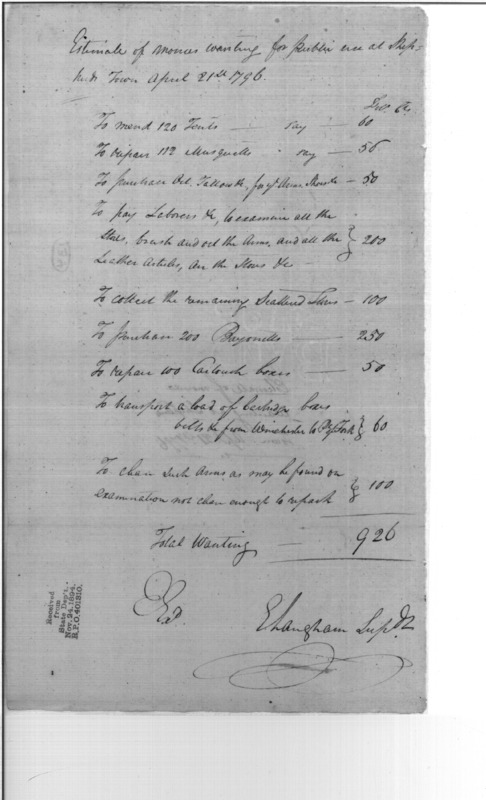 Estimate of monies wanting for public use at Shep-
herds Town April 21st 1796.
To mend 120 Tents — say — 60
To repair 112 Musquetts say — 56
To purchase Oil, Tallow &c, for Arms — 50
To pay Laborers &c, to examine all the
Stores, brush and oil the Arms, and all the
Leather Articles, Air the Stores &c — 200
To collect the remaining Scattered — 100
To purchase 200 Bayonetts — 250
To repair 100 Cartouch boxes — 50
To transport a load of Cartridge boxes
belts &c from Winchester to — 60
To clean such Arms as may be found on
examination not clean enough to repack — 100
Total Wanting — 926
E Langham Supdt
Received
from
State Dep't.
Nov. 24, 1894.
R.P.O. 401310.